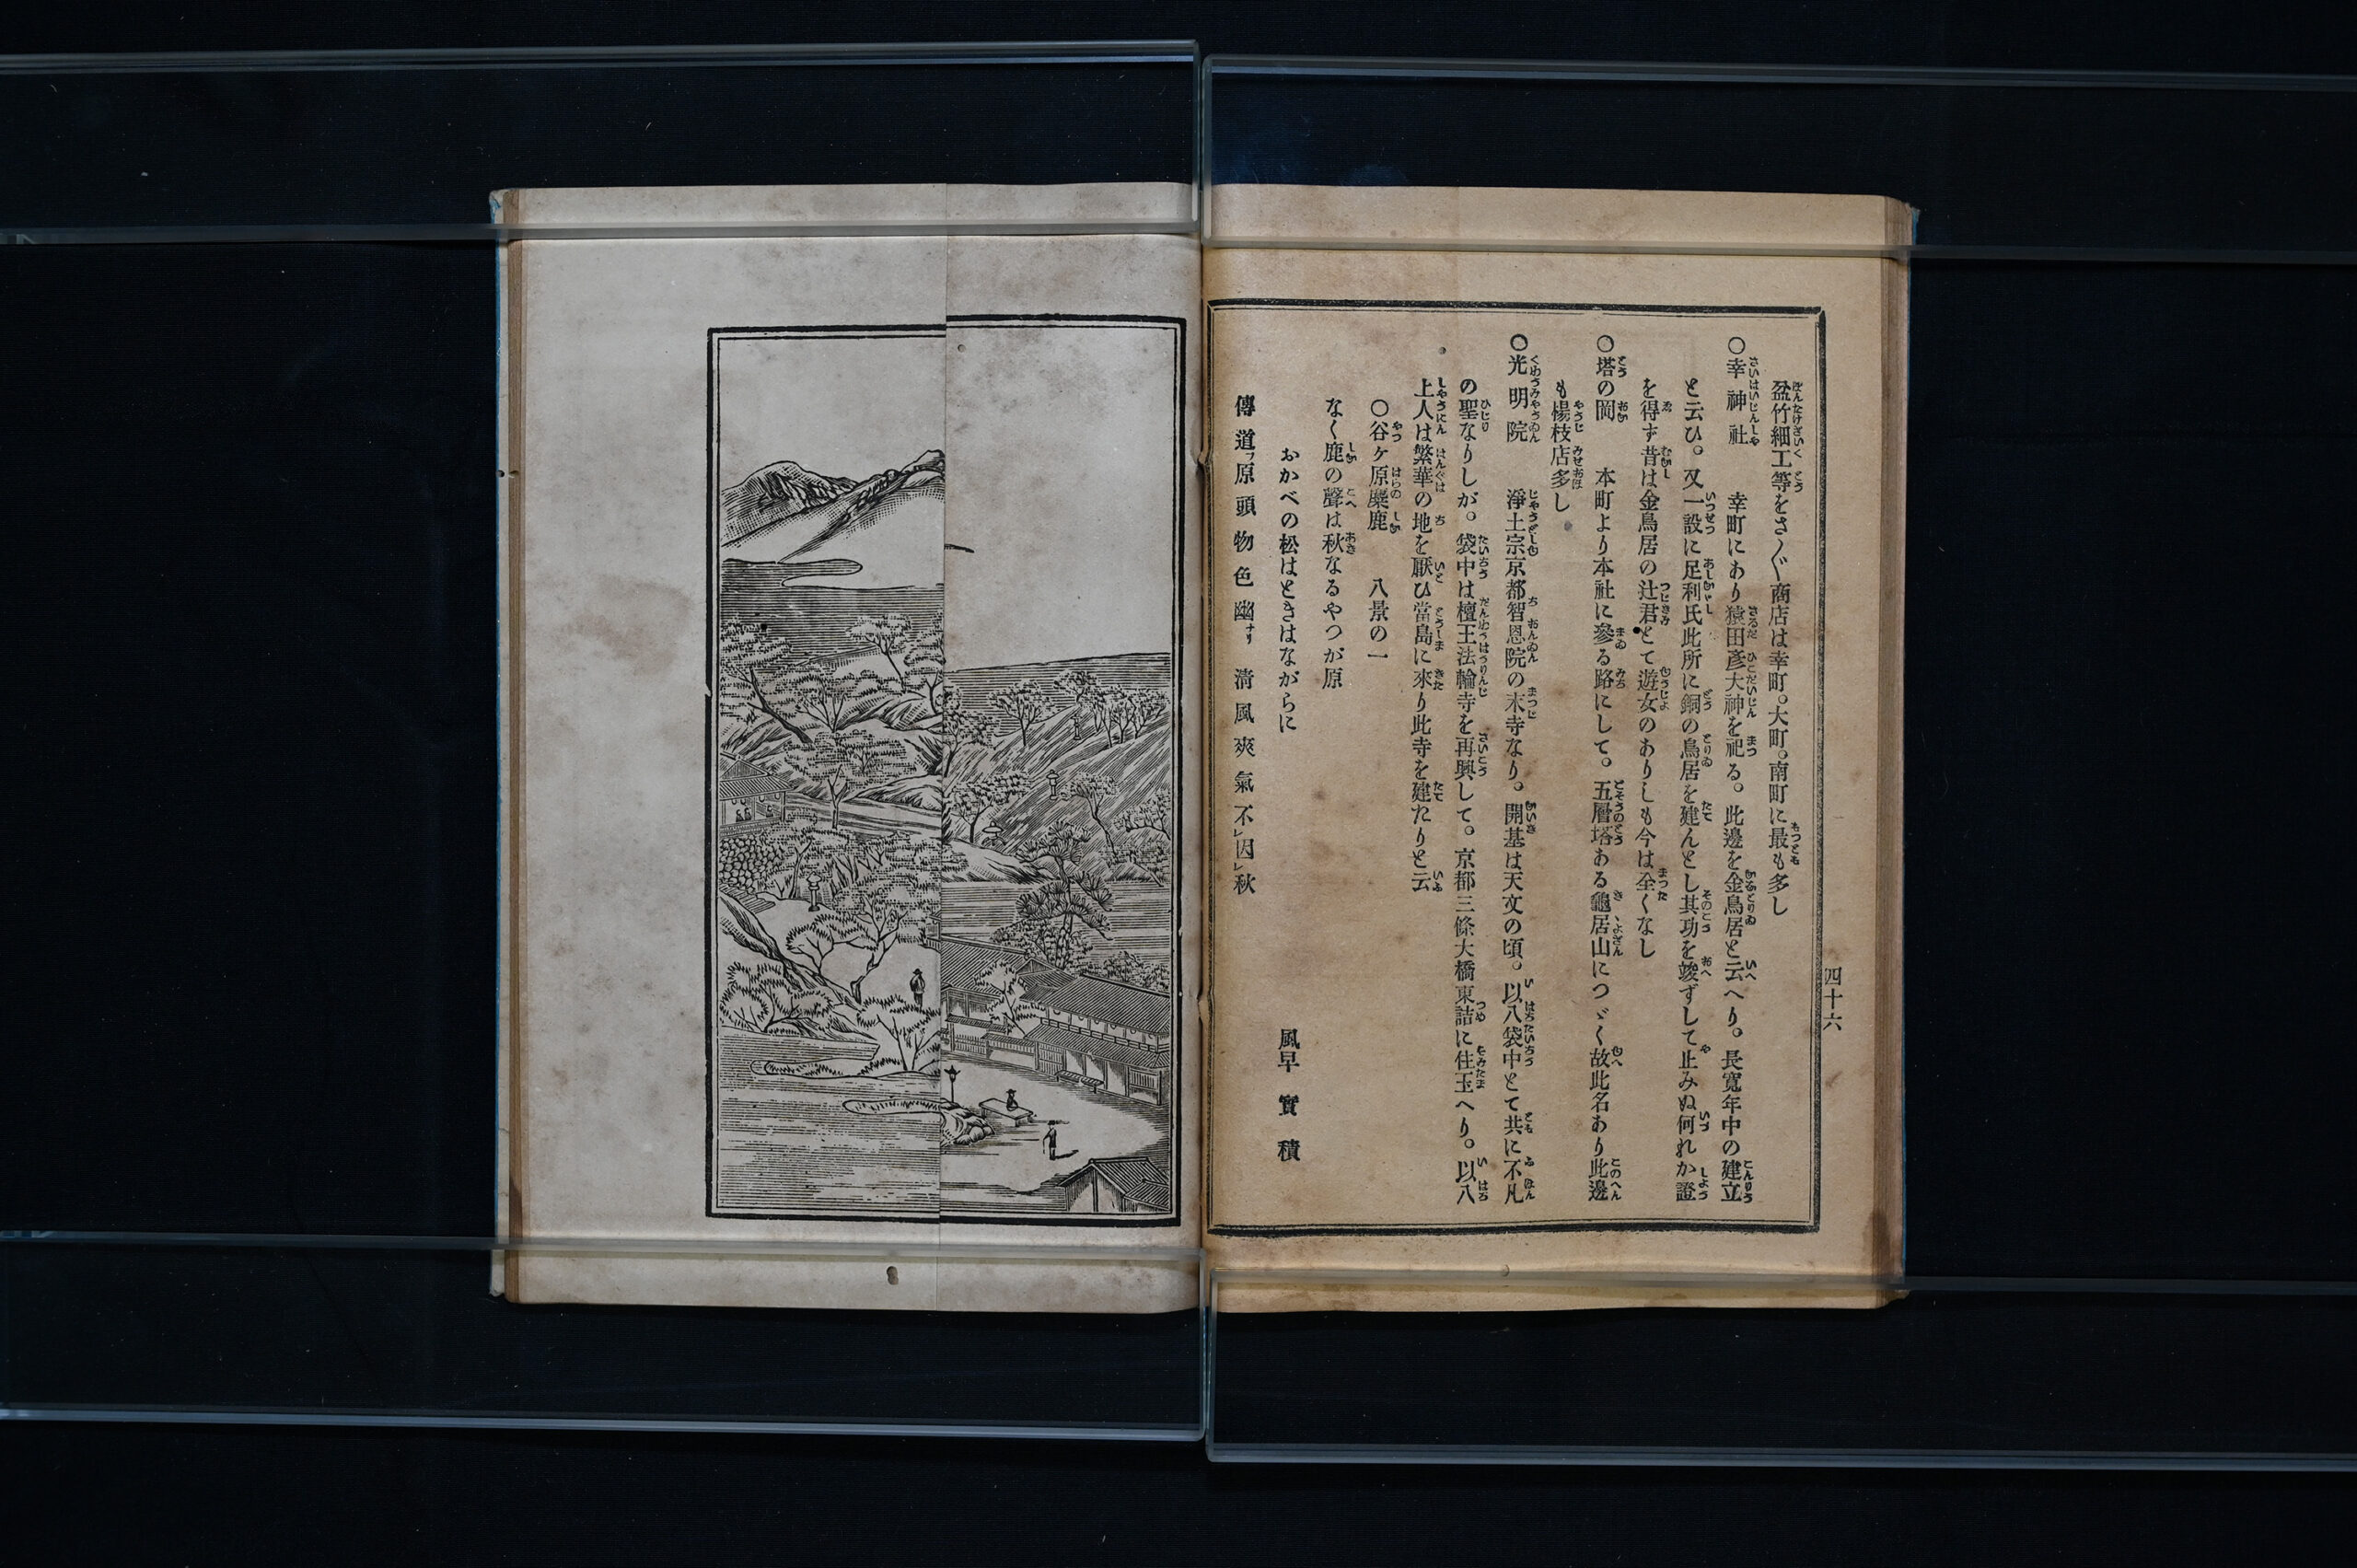 四十六
盆竹細工等をさヽぐ商店は幸町。大町。南町に最も多し
○幸神社 幸町にあり猿田彦大神を祀る。此邊を金鳥居と云へり。長寛年中の建立
と云ひ。又一説に足利氏此所に銅の鳥居を建んとし其功を竣ずして止みぬ何れか證
を得ず昔は金鳥居の辻君とて遊女のありしも今は全くなし
○塔の岡 本町より本社に參る路にして。五層塔ある龜居山につゞく故此名あり此邊
も楊枝店多し
○光明院 淨土宗京都智恩院の末寺なり。開基は天文の頃。以八袋中とて共に不凡
の聖なりしが。袋中は檀王法輪寺を再興して。京都三條大橋東詰に住玉へり。以八
上人は繁華の地を厭ひ當島に來り此寺を建たりと云
○谷ヶ原麋鹿 八景の一
なく鹿の聲は秋なるやつが原
おかべの松はときはながらに 風早實積
傳道フ原頭物色幽ナリ 清風爽氣不レ因レ秋